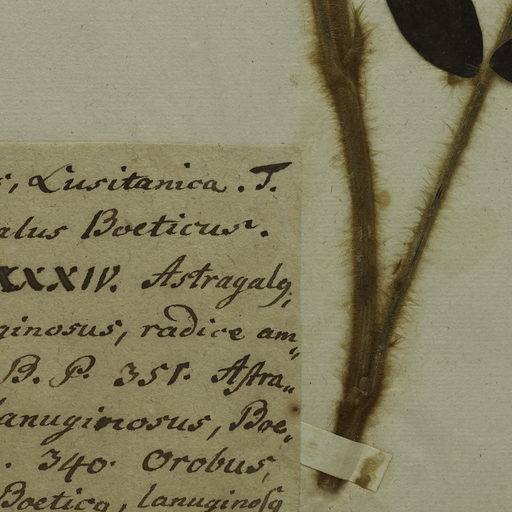 s, Lusitanica. T.
alus Boeticus.
XXXIV. Astragalq,
ginosus, radice am„
B. P. 351. Astra„
lanuginosus, Boe„
. 340. Orobus,
Boeticq, lanuginosq